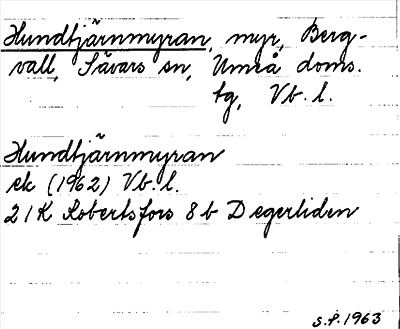 Hundtjärnmyran, myr, Berg-
vall, Sävars sn, Umeå doms.
tg, Vb. l.
Hundtjärnmyran
ek (1962) Vb. l.
21K Robertsfors 8b Degerliden
S.P. 1963